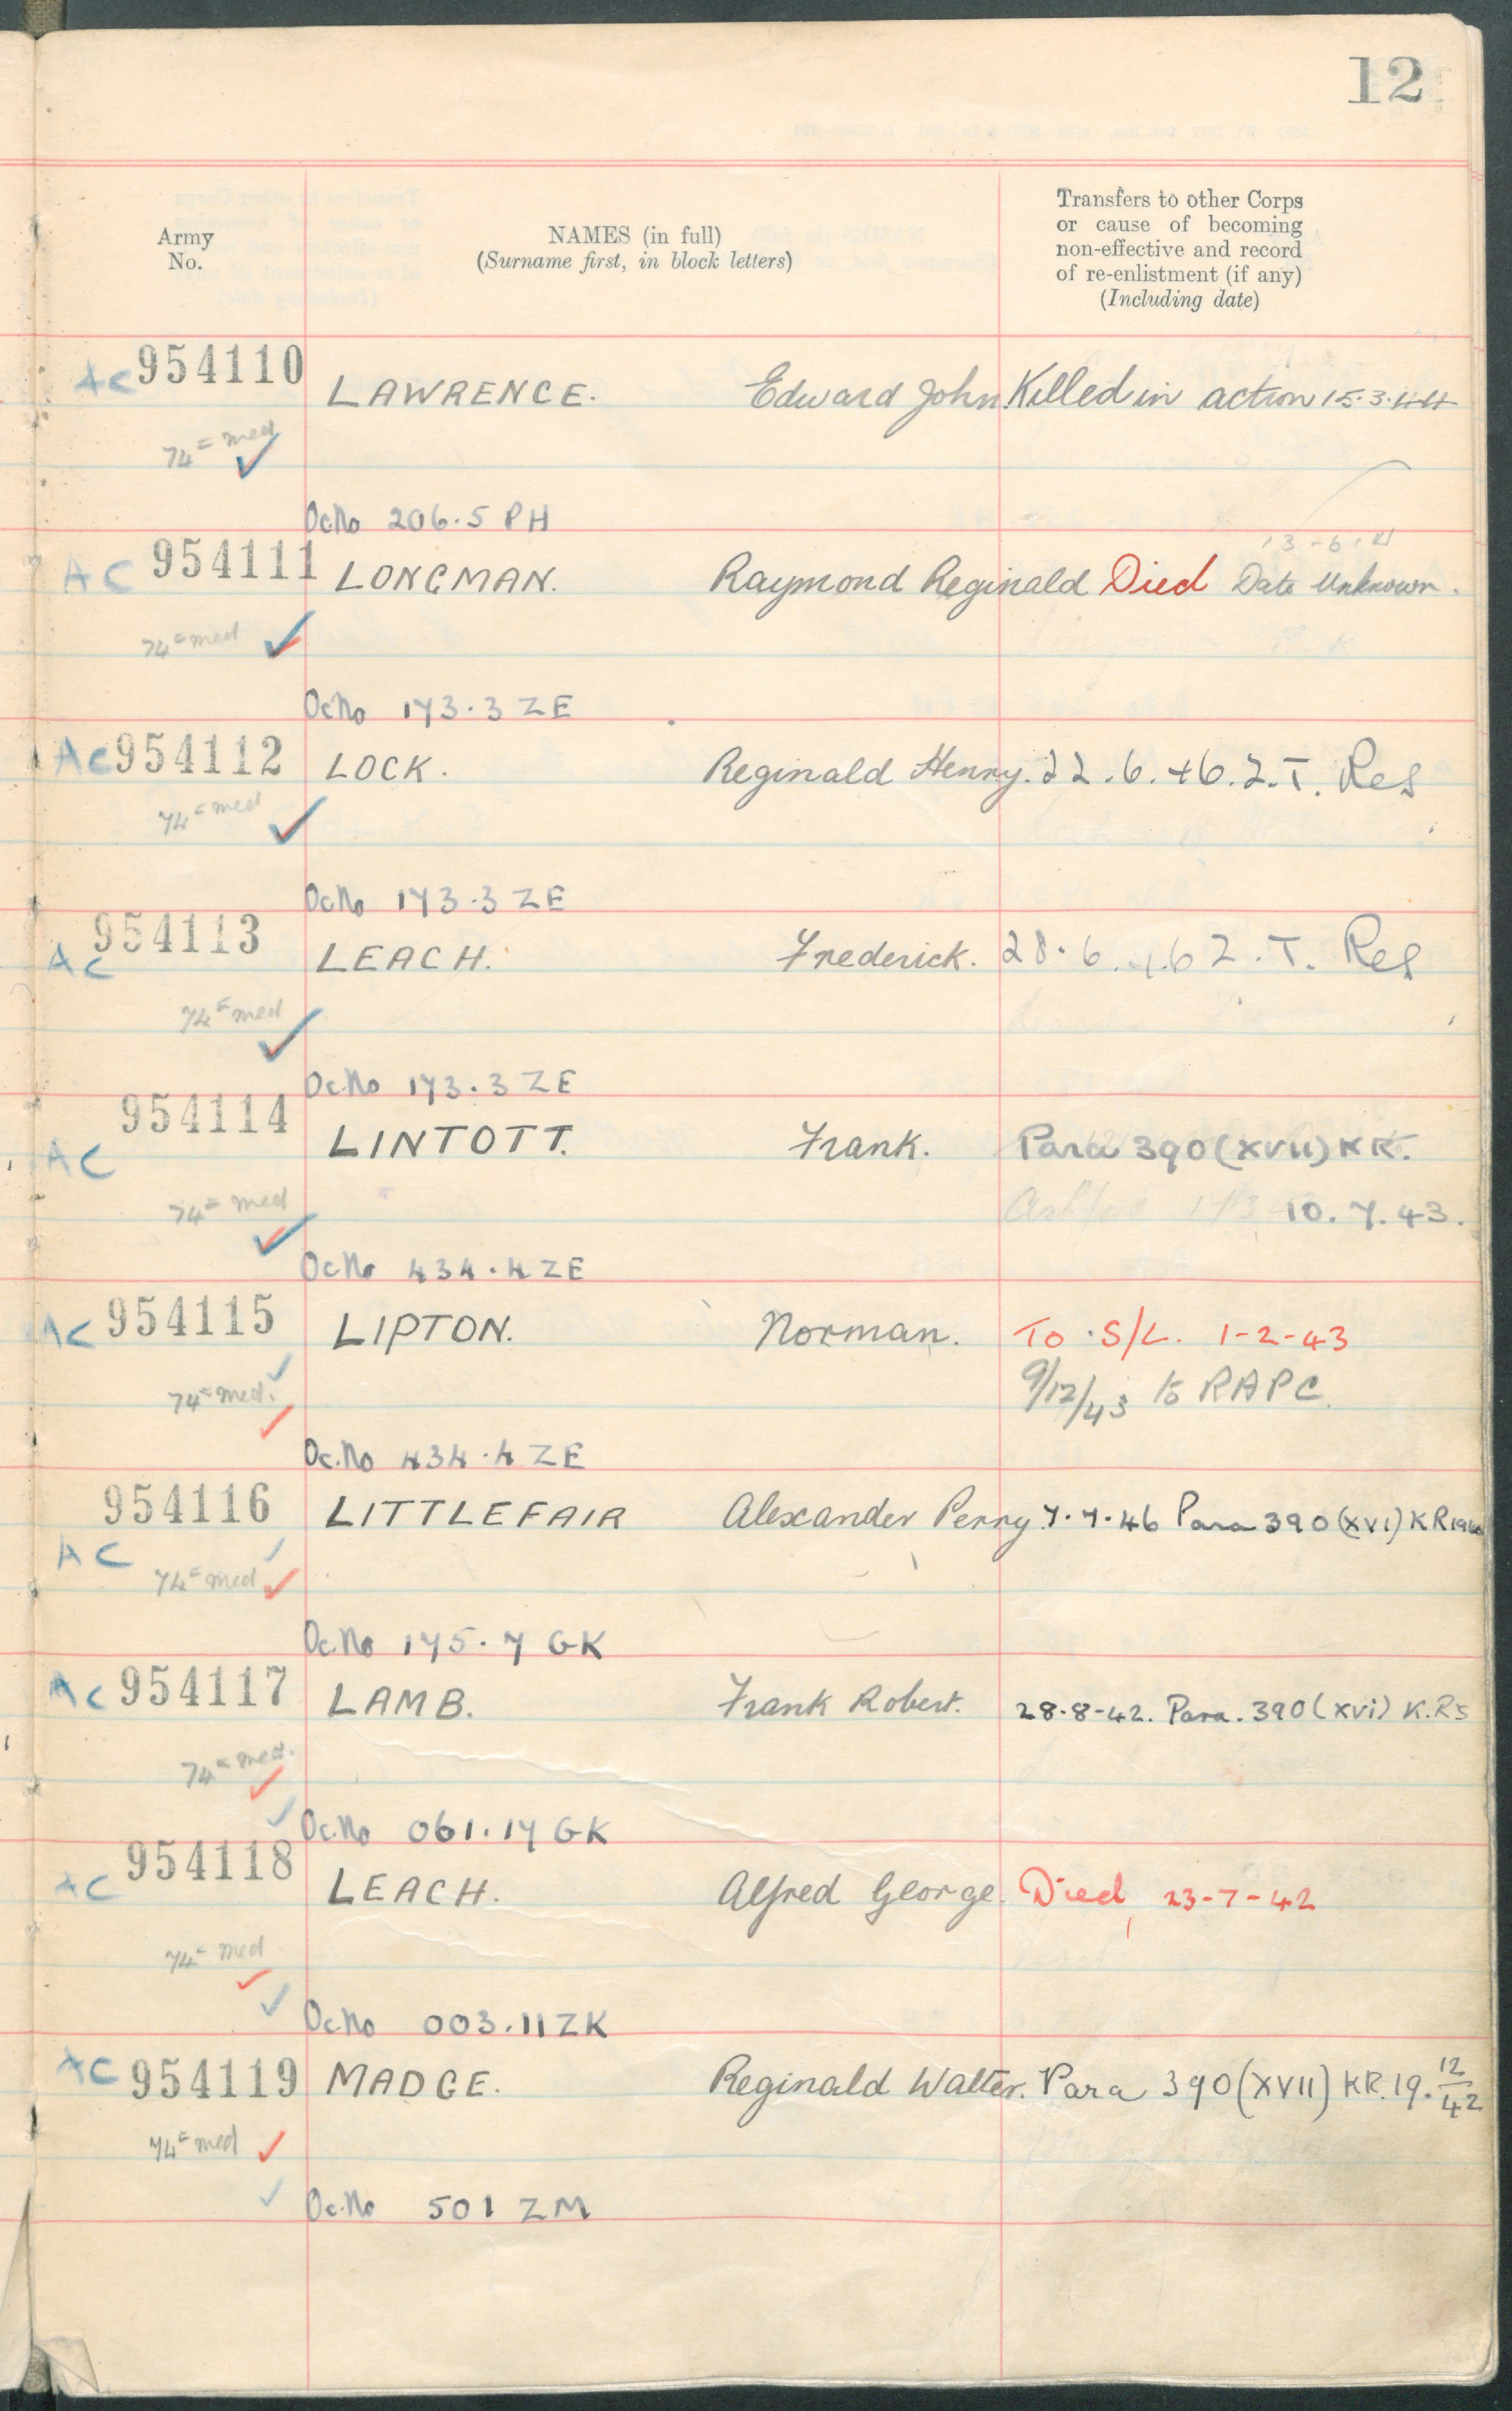 12
Army
No.
NAMES (in full)
(Surname first, in block letters)
Transfers to other Corps
or cause of becoming
non-effective and record
of re-enlistment (if any)
(Including date)
AC 954110 LAWRENCE. Edward John. Killed in action 15.3.44
74 = med
Oc.No 206.5 PH
13-6-
AC 954111 LONGMAN. Raymond Reginald Died Date Unknown.
74 = med
Oc.No 173.3 ZE
AC 954112 LOCK. Reginald Henry. 22.6.46. Z.T. Res
74 = med
Oc.No 173.3 ZE
AC 954113 LEACH. Frederick. 28.6.46 Z.T. Res
74 = med
Oc.No 173.3 ZE
AC 954114 LINTOTT. Frank. Para 390 (XVII) KR.
74 = med 10.7.43.
Oc.No 434.4 ZE
AC 954115 LIPTON. Norman. To S/L. 1-2-43
74 = med. 9/12/43 to RAPC.
Oc.No 434.4 ZE
AC 954116 LITTLEFAIR Alexander Perry 7.7.46 Para 390 (XVI) KR 1940
74 = med
Oc.No 175.7 GK
AC 954117 LAMB. Frank Robert. 28-8-42. Para. 390 (xvi) K.Rs
74 = med.
Oc.No 061.17 GK
AC 954118 LEACH. Alfred George. Died 23-7-42
74 = med
Oc.No 003.11 ZK
AC 954119 MADGE. Reginald Walter. Para 390 (XVII) KR. 19.12/42
74 = med
Oc.No 501 ZM